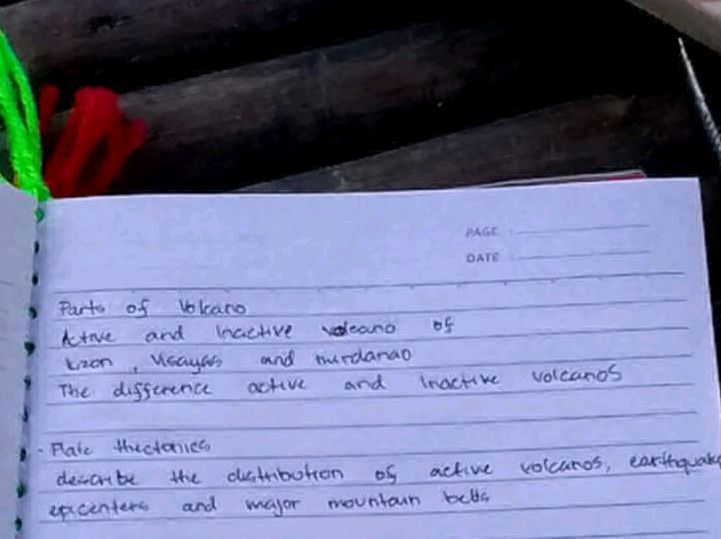 PAGE
DATE
Parts of Volcano
Active and Inactive volcano of
Luzon, Visayas and Mindanao
The difference active and Inactive volcanos
- Plate thectonics
describe the distribution of active volcanos, earthquake
epicenters and major mountain belts